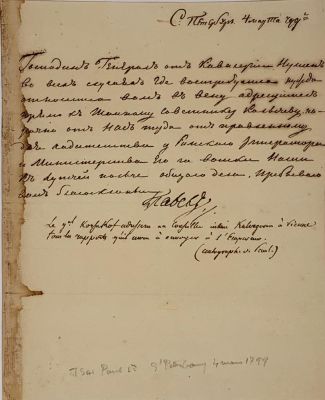 С. Петербургъ 4 марта 1799
Господинъ Генералъ отъ Кавалерiи
во всехъ случаяхъ где востребуется нужда
относиться вамъ въ Вену адресуйтесь
прямо къ Тайному Советнику Колычеву,
отъ Насъ туда отправленному
для ходатайства у Римскаго Императора
и Министерства Его за войски Наши
и въ пользу общаго дела. Пребываю
вамъ благосклонный
Павелъ
Le général Korsakof adressera au Conseiller intime Kalitschef à Vienne
tous les rapports qu'il aura à envoyer à l'Empereur.
(autographe de Paul.)
Tsar Paul 1er St Petersbourg 4 mars 1799